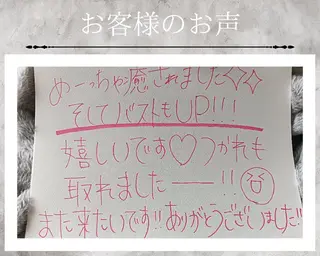 お客様のお声
めーっちゃ癒されました✧✧
そしてバストもUP!!!
嬉しいです♡つかれも
取れましたー!!
また来たいです!!ありがとうございました!!